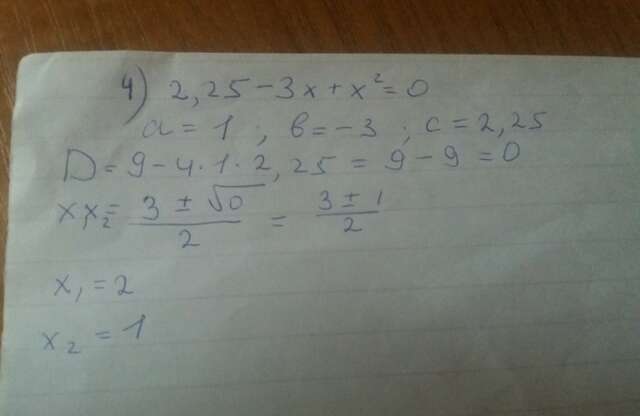 4) 2,25 - 3x + x² = 0
a = 1 ; b = -3 ; c = 2,25
D = 9 - 4·1·2,25 = 9 - 9 = 0
x₁x₂ = (3 ± √0)/2 = (3 ± 1)/2
x₁ = 2
x₂ = 1